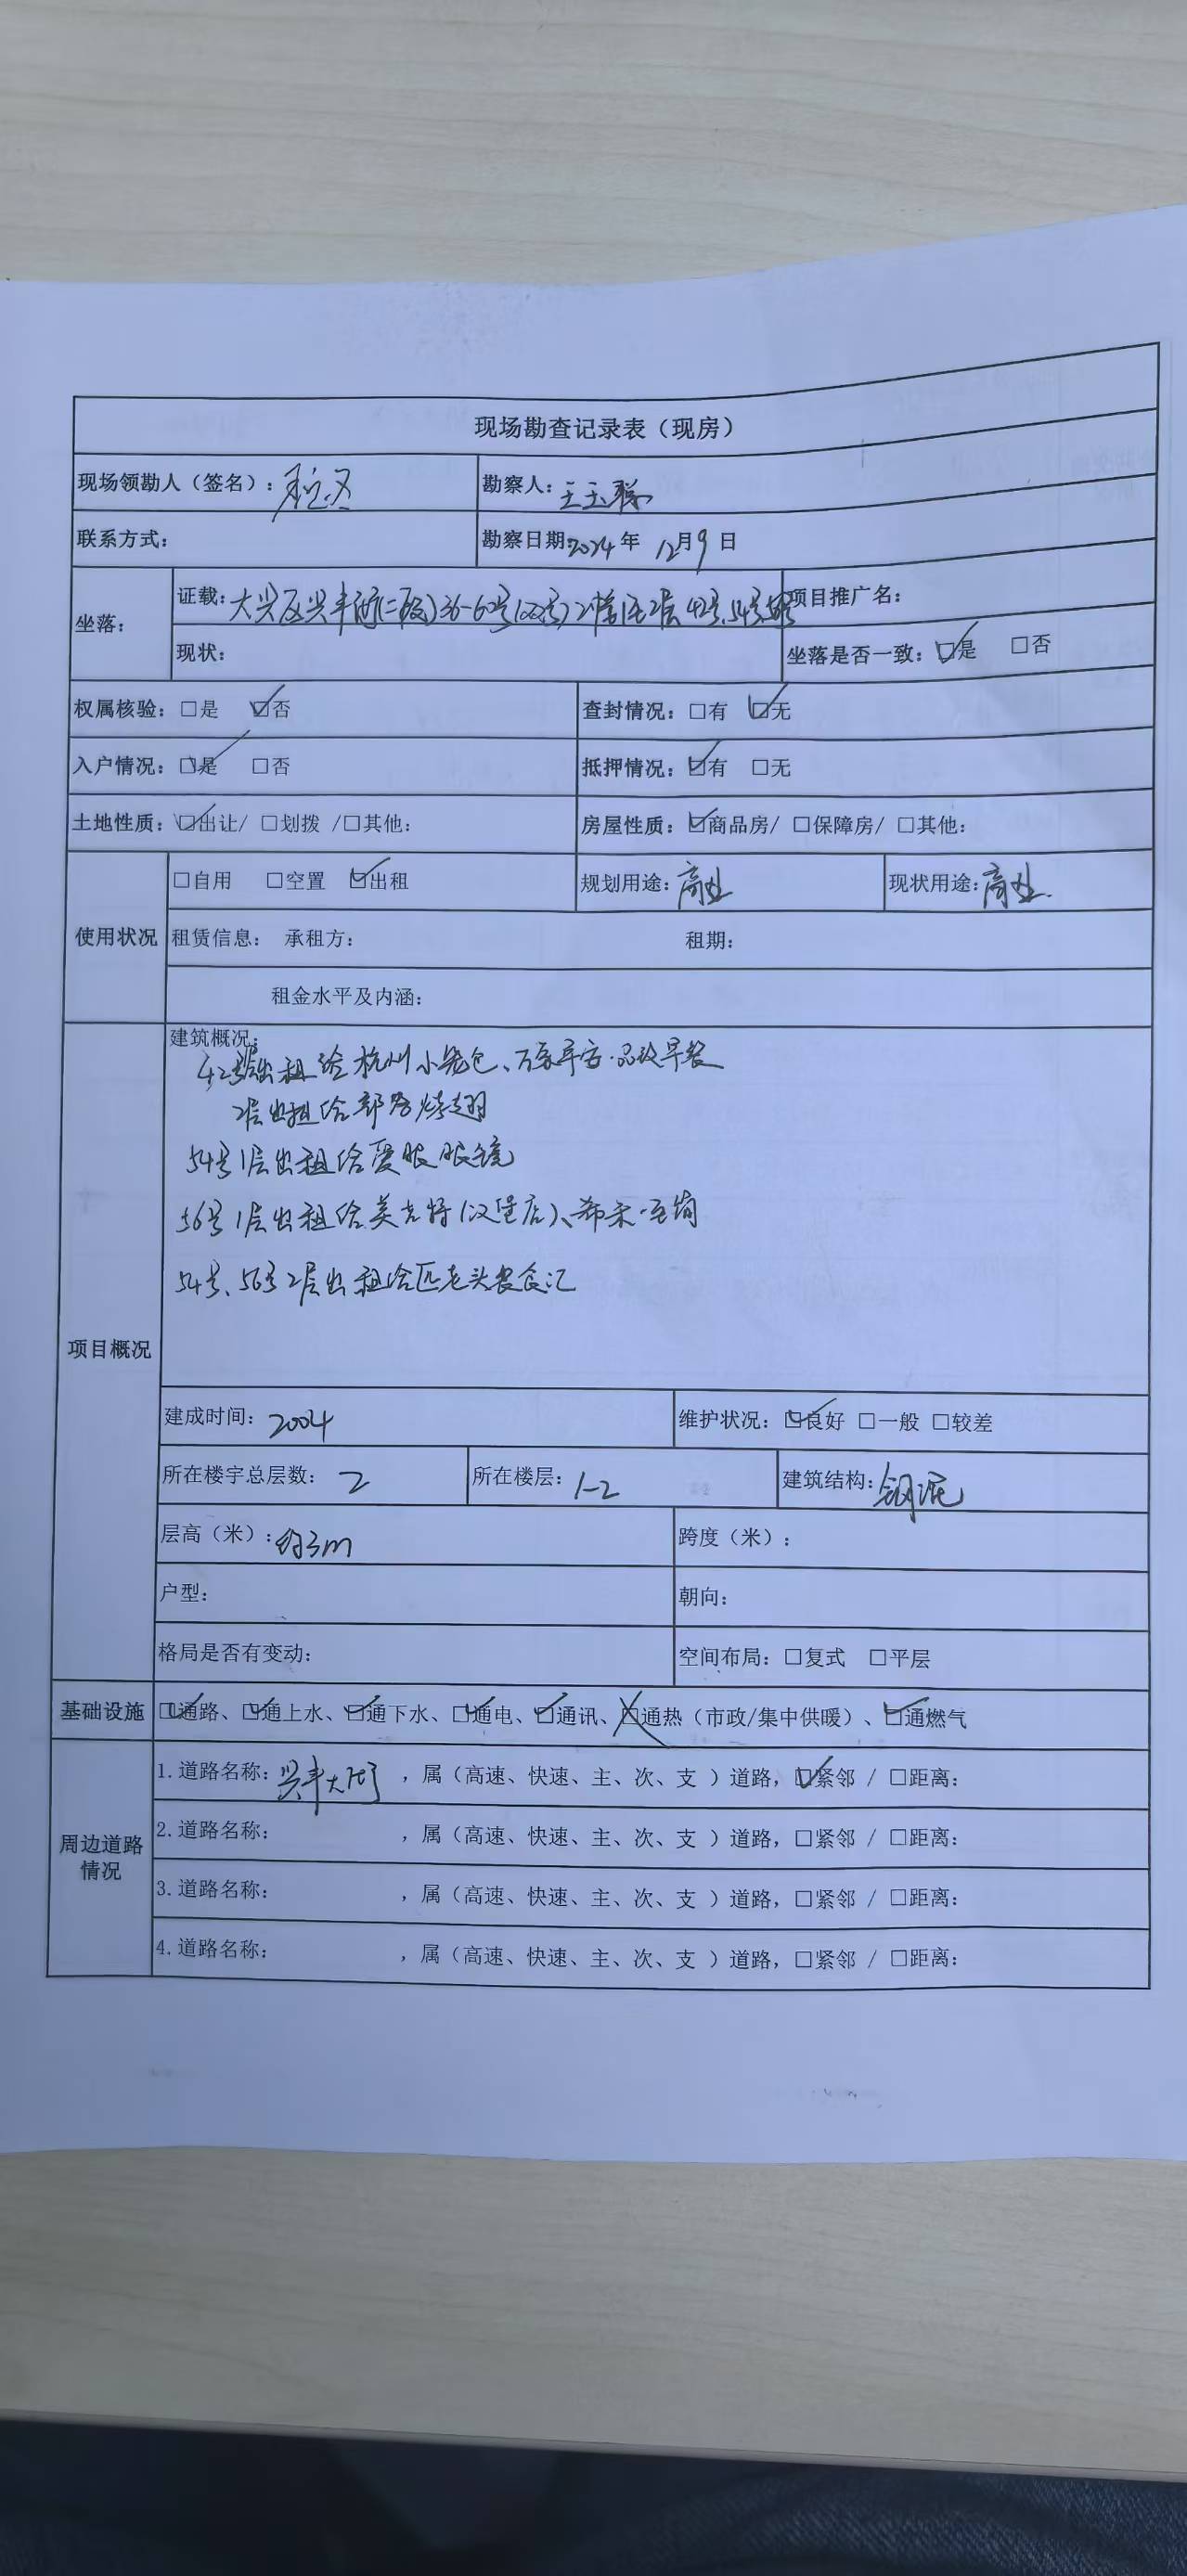 现场勘查记录表（现房）
现场领勘人（签名）： 勘察人：王玉
联系方式： 勘察日期2024年 12月9日
坐落： 证载：大兴区兴丰街(二段)36-60号(双号)2幢1至2层42号、54号、56号 项目推广名：
现状： 坐落是否一致：☑是 □否
权属核验：□是 ☑否 查封情况：□有 ☑无
入户情况：☑是 □否 抵押情况：☑有 □无
土地性质：☑出让/ □划拨 /□其他： 房屋性质：☑商品房/ □保障房/ □其他：
使用状况 □自用 □空置 ☑出租 规划用途：商业 现状用途：商业.
租赁信息： 承租方： 租期：
租金水平及内涵：
项目概况 建筑概况：
42号1层出租给杭州小笼包、万家平安·早餐
2层出租给部落烤翅
54号1层出租给爱眼眼镜
56号1层出租给美克特(汉堡店)、希禾·
54号、56号2层出租给匹老头食汇
建成时间：2004 维护状况：☑良好 □一般 □较差
所在楼宇总层数：2 所在楼层：1-2 建筑结构：钢混
层高（米）：约3m 跨度（米）：
户型： 朝向：
格局是否有变动： 空间布局：□复式 □平层
基础设施 ☑通路、☑通上水、☑通下水、☑通电、☑通讯、☒通热（市政/集中供暖）、☑通燃气
周边道路情况 1.道路名称：兴丰大街 ，属（高速、快速、主、次、支 ）道路，☑紧邻 / □距离：
2.道路名称： ，属（高速、快速、主、次、支 ）道路，□紧邻 / □距离：
3.道路名称： ，属（高速、快速、主、次、支 ）道路，□紧邻 / □距离：
4.道路名称： ，属（高速、快速、主、次、支 ）道路，□紧邻 / □距离：